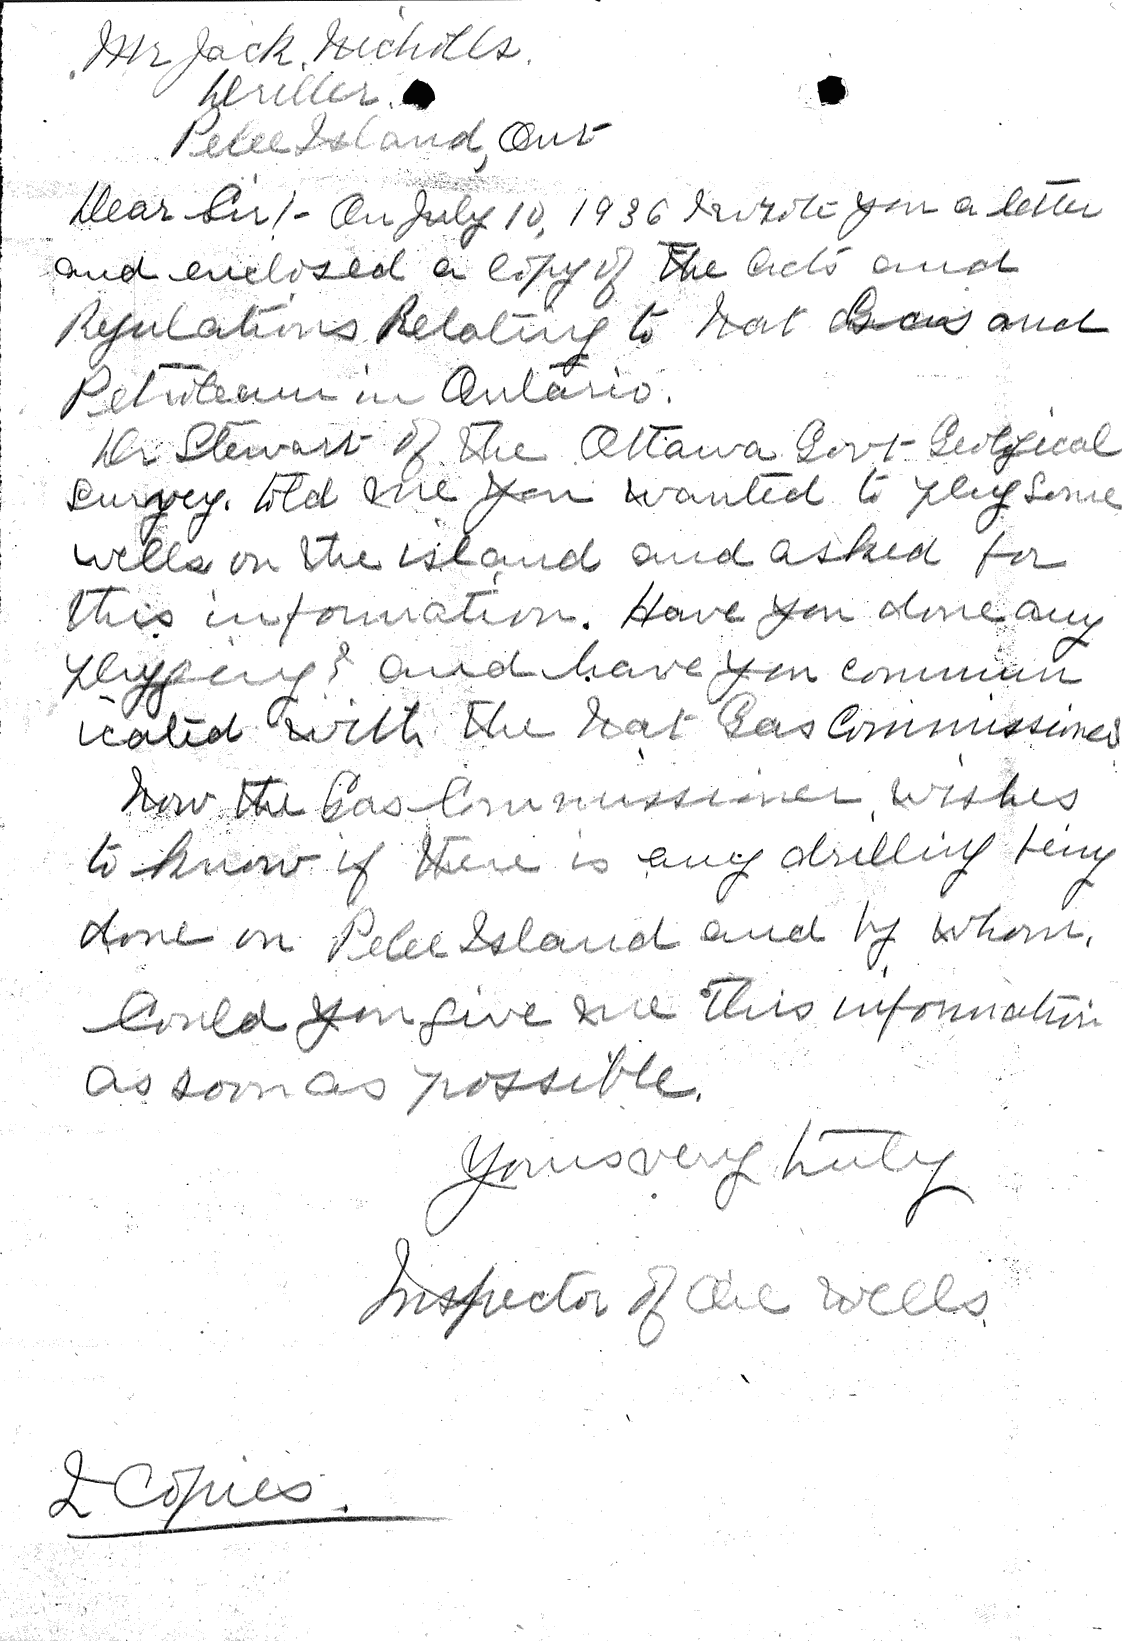 Mr Jack. Nicholls.
Driller.
Pelee Island, Ont
Dear Sir!- On July 10, 1936 I wrote you a letter
and enclosed a copy of the acts and
Regulations Relating to Nat Gas and
Petroleum in Ontario.
Dr Stewart of the Ottawa Govt Geological
survey. told me you wanted to plug some
wells on the island and asked for
this information. Have you done any
plugging? and have you commun
icated with the Nat Gas Commissioner
Now the Gas Commissioner wishes
to know if there is any drilling being
done on Pelee Island and by whom.
Could you give me this information
as soon as possible.
Yours very truly
Inspector of Oil Wells
2 Copies.